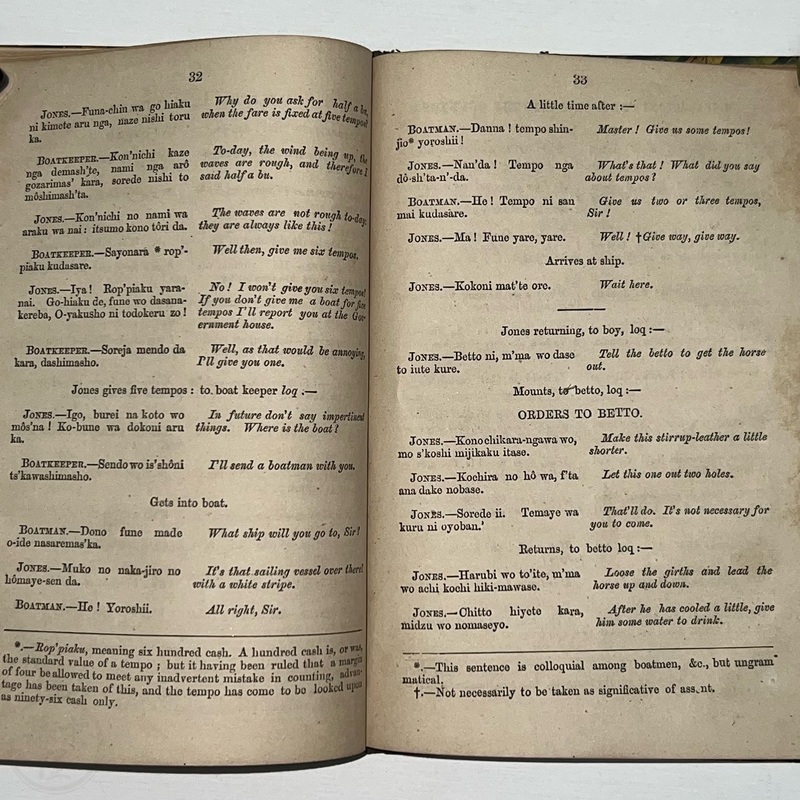 32
JONES.—Funa-chin wa go hiaku
ni kimete aru nga, naze nishi toru
ka.
Why do you ask for half a bu,
when the fare is fixed at five tempos?
BOATKEEPER.—Kon'nichi kaze
nga demash'te, nami nga arô
gozarimas' kara, sorede nishi to
môshimash'ta.
To-day, the wind being up, the
waves are rough, and therefore I
said half a bu.
JONES.—Kon'nichi no nami wa
araku wa nai: itsumo kono tôri da.
The waves are not rough to-day:
they are always like this!
BOATKEEPER.—Sayonara * rop'-
piaku kudasare.
Well then, give me six tempos.
JONES.—Iya! Rop'piaku yara-
nai. Go-hiaku de, fune wo dasana-
kereba, O-yakusho ni todokeru zo!
No! I won't give you six tempos!
If you don't give me a boat for five
tempos I'll report you at the Gov-
ernment house.
BOATKEEPER.—Soreja mendo da
kara, dashimasho.
Well, as that would be annoying,
I'll give you one.
Jones gives five tempos: to boat keeper loq.:—
JONES.—Igo, burei na koto wo
môs'na! Ko-bune wa dokoni aru
ka.
In future don't say impertinent
things. Where is the boat?
BOATKEEPER.—Sendo wo is'shôni
ts'kawashimasho.
I'll send a boatman with you.
Gets into boat.
BOATMAN.—Dono fune made
o-ide nasaremas'ka.
What ship will you go to, Sir?
JONES.—Muko no naka-jiro no
hômaye-sen da.
It's that sailing vessel over there!
with a white stripe.
BOATMAN.—He! Yoroshii.
All right, Sir.
*.—Rop'piaku, meaning six hundred cash. A hundred cash is, or was,
the standard value of a tempo; but it having been ruled that a margin
of four be allowed to meet any inadvertent mistake in counting, advan-
tage has been taken of this, and the tempo has come to be looked upon
as ninety-six cash only.
33
A little time after:—
BOATMAN.—Danna! tempo shin-
jio* yoroshii!
Master! Give us some tempos!
JONES.—Nan'da! Tempo nga
dô-sh'ta-n'-da.
What's that! What did you say
about tempos?
BOATMAN.—He! Tempo ni san
mai kudasare.
Give us two or three tempos,
Sir!
JONES.—Ma! Fune yare, yare.
Well! †Give way, give way.
Arrives at ship.
JONES.—Kokoni mat'te oro.
Wait here.
Jones returning, to boy, loq:—
JONES.—Betto ni, m'ma wo dase
to iute kure.
Tell the betto to get the horse
out.
Mounts, to betto, loq:—
ORDERS TO BETTO.
JONES.—Kono chikara-ngawa wo,
mo s'koshi mijikaku itase.
Make this stirrup-leather a little
shorter.
JONES.—Kochira no hô wa, f'ta
ana dake nobase.
Let this one out two holes.
JONES.—Sorede ii. Temaye wa
kuru ni oyoban.'
That'll do. It's not necessary for
you to come.
Returns, to betto loq:—
JONES.—Harubi wo to'ite, m'ma
wo achi kochi hiki-mawase.
Loose the girths and lead the
horse up and down.
JONES.—Chitto hiyete kara,
midzu wo nomaseyo.
After he has cooled a little, give
him some water to drink.
*.—This sentence is colloquial among boatmen, &c., but ungram
matical.
†.—Not necessarily to be taken as significative of assent.